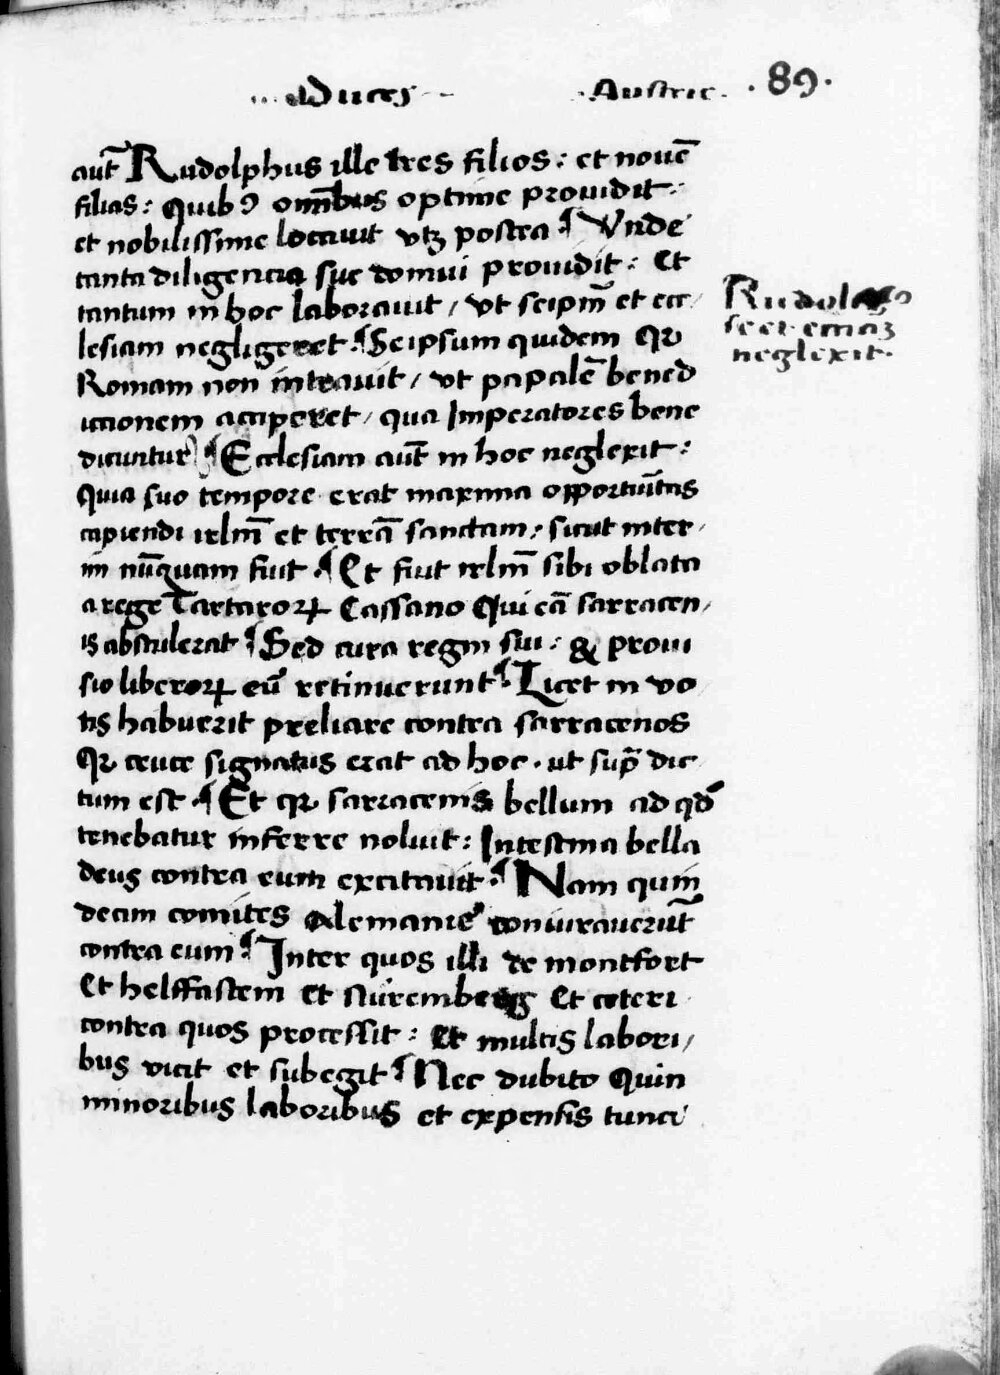 Duces Austrie . 89.
aut̄ Rudolphus ille tres filios : et nouē
filias : Quibꝰ om̄ibus optime prouidit
et nobilissime locauit vtꝫ postea ¶ Vnde
tanta diligencia sue domui prouidit : Et
tantum in hoc laborauit / vt seipm̄ et ecc/
lesiam negligeret ¶ Seipsum quidem Qꝛ
Romam non intrauit / vt papalē bened
ictionem acciperet / qua Imperatores bene
dicuntur ¶ Ecclesiam aut̄ in hoc neglexit :
Quia suo tempore erat maxima opportuītas
capiendi irlm̄ et terrā sanctam / sicut inter/
im nūquam fuit ¶ Et fuit irlm̄ sibi oblata
a rege Tartaroꝝ Cassano Qui eā sarracen/
is abstulerat ¶ Sed cura regni sui : & proui
sio liberoꝝ eū retinuerunt ¶ Licet in vo
tis habuerit preliare contra sarracenos
Qꝛ cruce signatus erat ad hoc . ut supͣ dic
tum est ¶ Et qꝛ sarracenis bellum ad qd̄
tenebatur inferre noluit : Intestina bella
deus contra eum excitauit ¶ Nam quin
decim comites Alemanie coniurauerūt
contra eum ¶ Inter quos illi de montfort
Et helffastem et Nüremberg Et ceteri
contra quos processit : Et multis labori/
bus vicit et subegit ¶ Nec dubito Quin
minoribus laboribus et expensis tunc
Rudol
se et
neglexit .